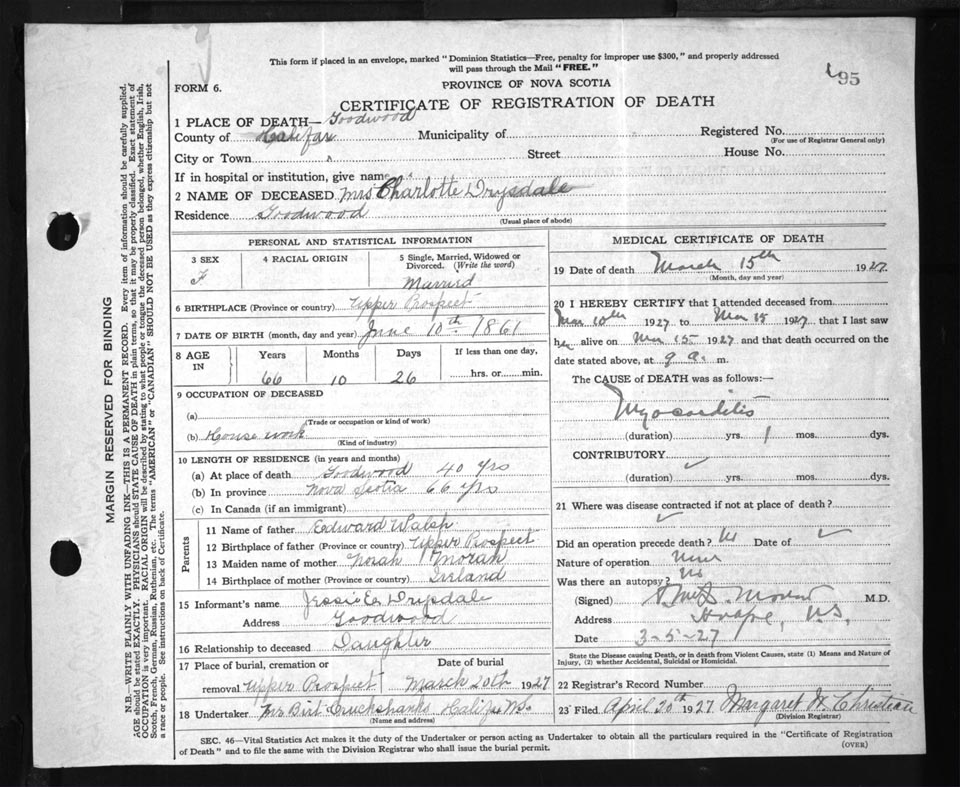 This form if placed in an envelope, marked "Dominion Statistics—Free, penalty for improper use $300," and properly addressed
will pass through the Mail "FREE."
95
FORM 6.
PROVINCE OF NOVA SCOTIA
CERTIFICATE OF REGISTRATION OF DEATH
1 PLACE OF DEATH— Goodwood
County of Halifax Municipality of Registered No.
(For use of Registrar General only)
City or Town Street House No.
If in hospital or institution, give name
2 NAME OF DECEASED Mrs Charlotte Drysdale
Residence Goodwood
(Usual place of abode)
PERSONAL AND STATISTICAL INFORMATION
3 SEX
F
4 RACIAL ORIGIN
5 Single, Married, Widowed or
Divorced. (Write the word)
Married
6 BIRTHPLACE (Province or country) Upper Prospect
7 DATE OF BIRTH (month, day and year) June 10th 1861
8 AGE
IN
Years Months Days If less than one day,
66 10 26 hrs. or min.
9 OCCUPATION OF DECEASED
(a)
(Trade or occupation or kind of work)
(b) House work
(Kind of industry)
10 LENGTH OF RESIDENCE (in years and months)
(a) At place of death Goodwood 40 yrs
(b) In province Nova Scotia 66 yrs
(c) In Canada (if an immigrant)
Parents
11 Name of father Edward Walsh
12 Birthplace of father (Province or country) Upper Prospect
13 Maiden name of mother Norah Moran
14 Birthplace of mother (Province or country) Ireland
15 Informant's name Jessie Drysdale
Address Goodwood
16 Relationship to deceased Daughter
17 Place of burial, cremation or Date of burial
removal Upper Prospect March 20th 1927
18 Undertaker Cruckshanks Halifax
(Name and address)
MEDICAL CERTIFICATE OF DEATH
19 Date of death March 15th 1927
(Month, day and year)
20 I HEREBY CERTIFY that I attended deceased from
Mar 10th 1927 to Mar 15 1927 that I last saw
her alive on Mar 15 1927 and that death occurred on the
date stated above, at 9 a. m.
The CAUSE of DEATH was as follows:—
Myocarditis
(duration) yrs. 1 mos. dys.
CONTRIBUTORY
(duration) yrs. mos. dys.
21 Where was disease contracted if not at place of death?
Did an operation precede death? No Date of
Nature of operation
Was there an autopsy? No
(Signed) M.D.
Address N.S.
Date 3-5-27
State the Disease causing Death, or in death from Violent Causes, state (1) Means and Nature of
Injury, (2) whether Accidental, Suicidal or Homicidal.
22 Registrar's Record Number
23 Filed April 20th 1927 Margaret W. Christian
(Division Registrar)
SEC. 46—Vital Statistics Act makes it the duty of the Undertaker or person acting as Undertaker to obtain all the particulars required in the "Certificate of Registration
of Death" and to file the same with the Division Registrar who shall issue the burial permit.
(OVER)
MARGIN RESERVED FOR BINDING
N.B.—WRITE PLAINLY WITH UNFADING INK—THIS IS A PERMANENT RECORD. Every item of information should be carefully supplied.
AGE should be stated EXACTLY. PHYSICIANS should STATE CAUSE OF DEATH in plain terms, so that it may be properly classified. Exact statement of
OCCUPATION is very important. RACIAL ORIGIN will be described by stating to what people or tongue the deceased person belonged, whether English, Irish,
Scotch, French, German, Russian, Ruthenian, etc. The terms "AMERICAN" or "CANADIAN" SHOULD NOT BE USED as they express citizenship but not
a race or people. See instructions on back of Certificate.